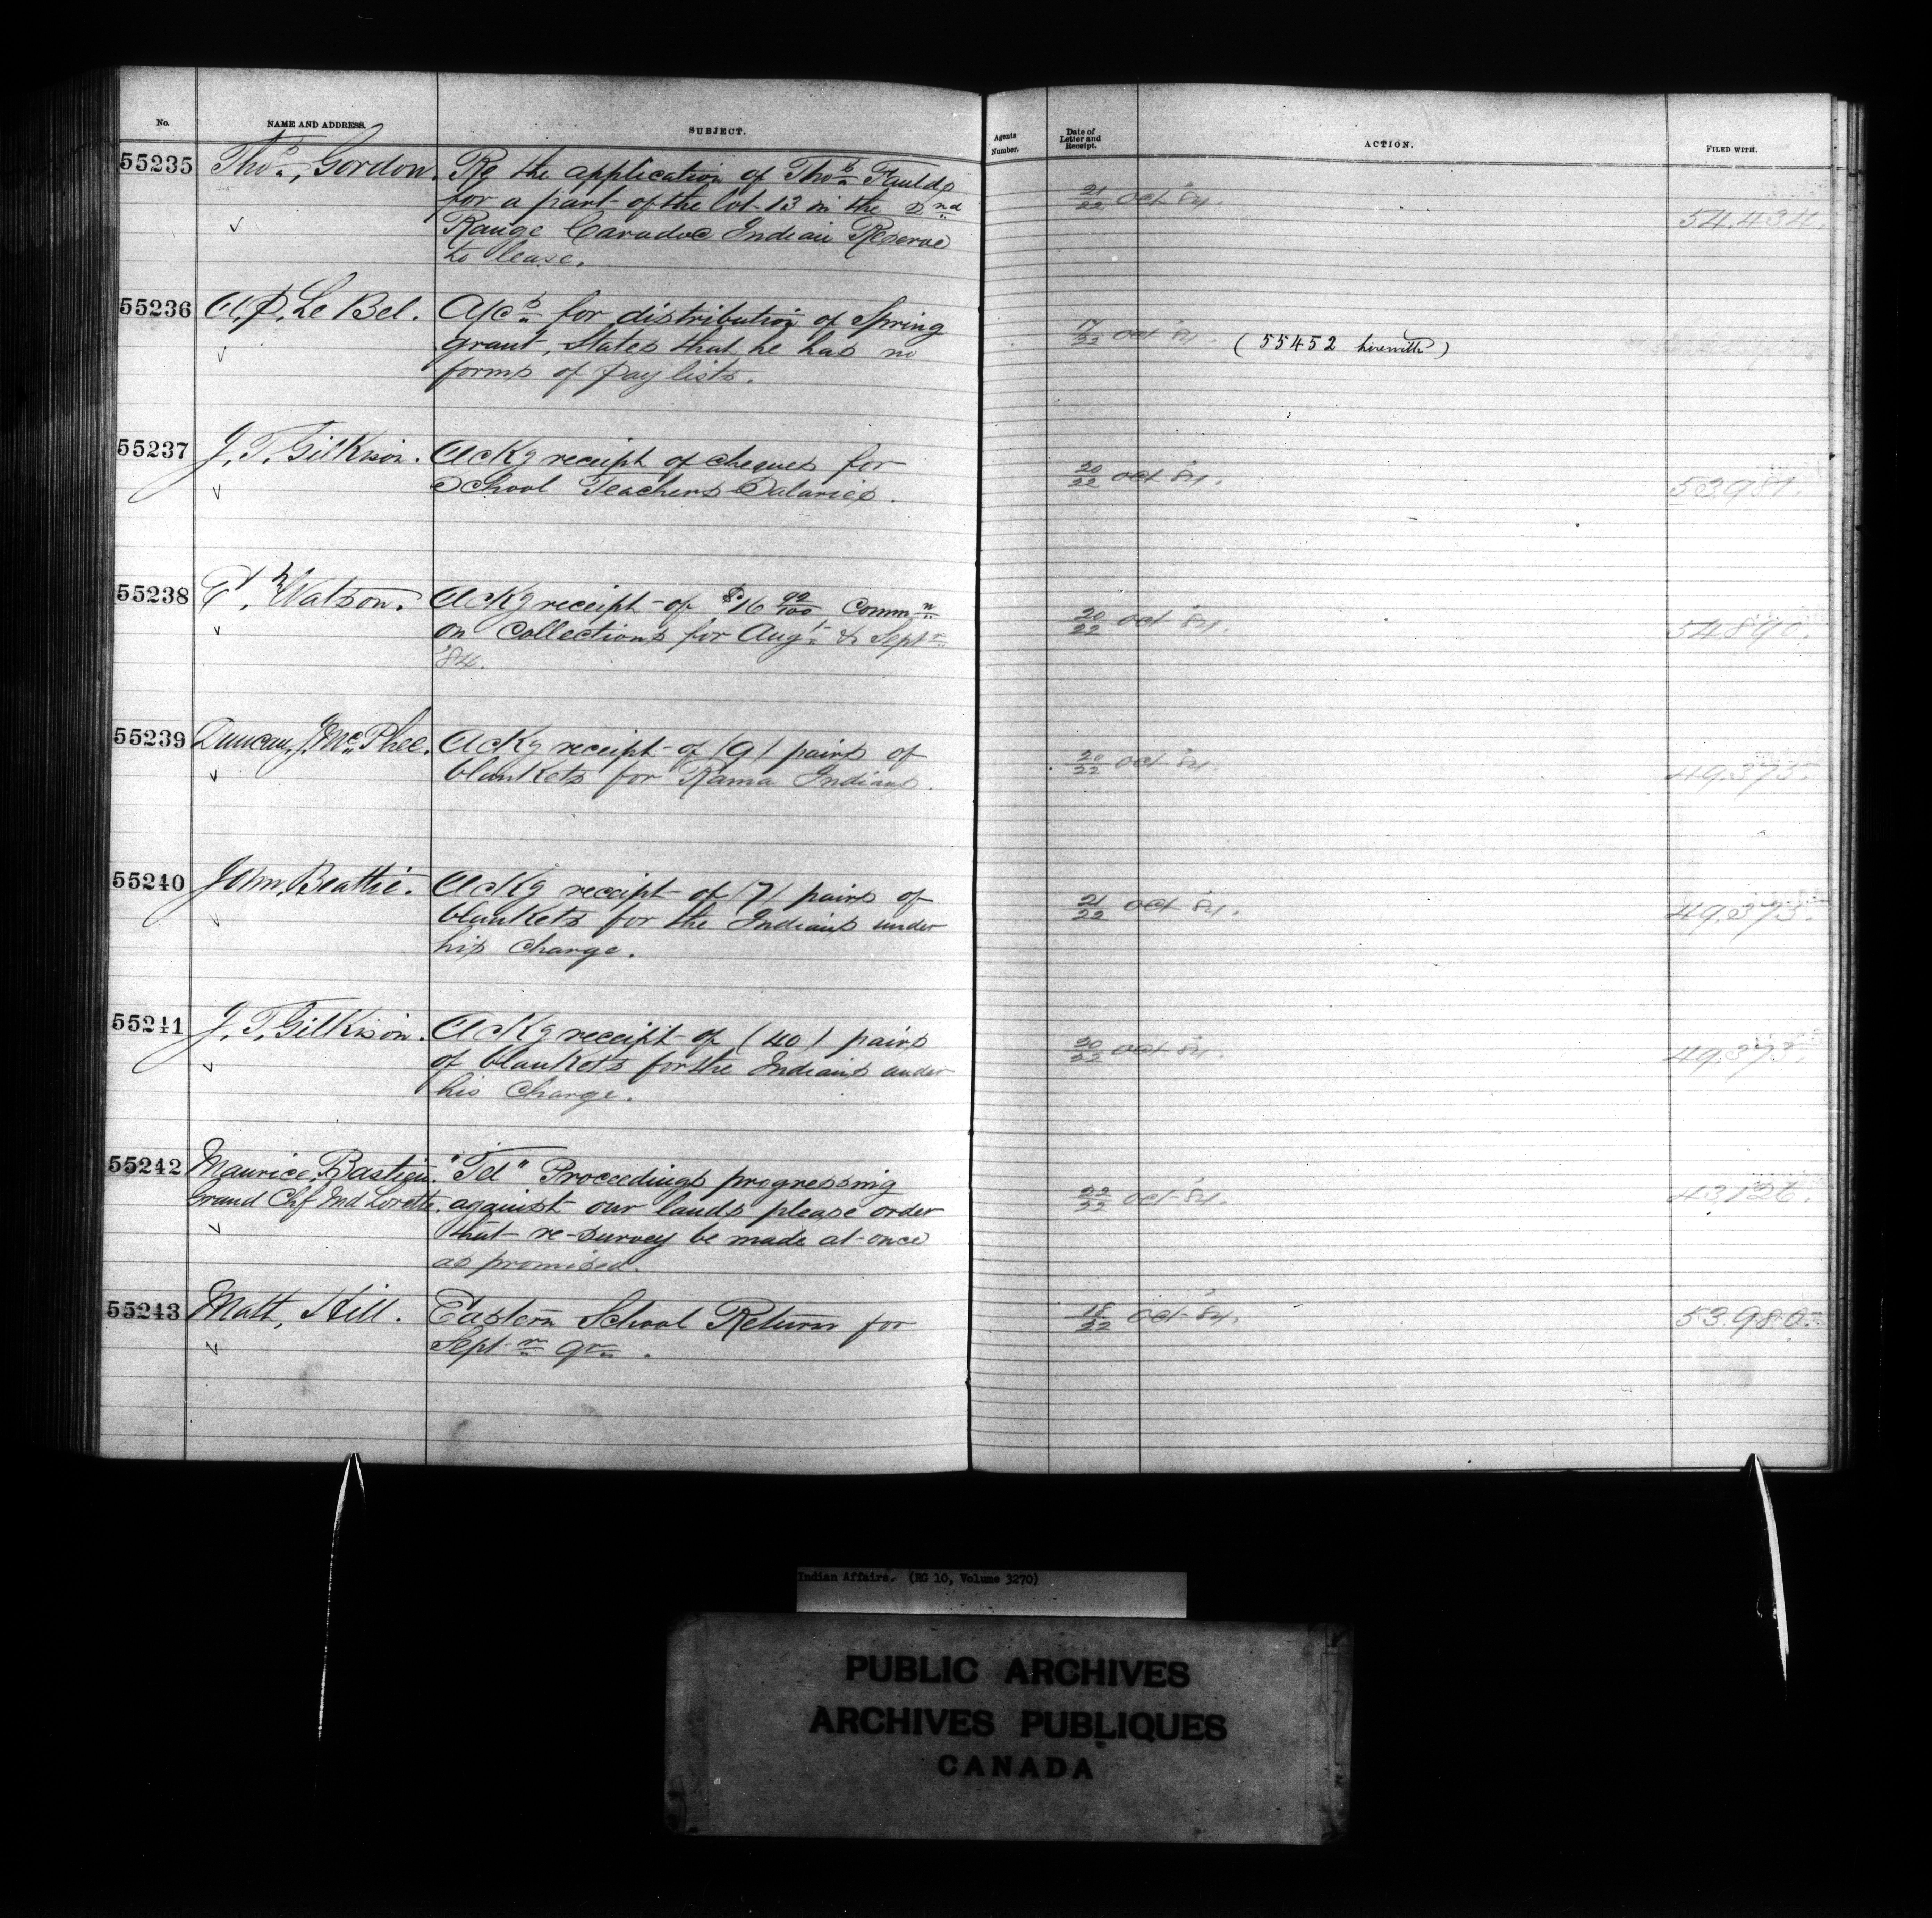 No.
NAME AND ADDRESS.
SUBJECT.
Agents
Number.
Date of
Letter and
Receipt.
ACTION.
FILED WITH.
55235
Thos., Gordon.
Re the application of Thos Faulds
for a part of the lot 13 in the 2nd
Range Caradoc Indian Reserve
to lease.
21/22 Oct '84.
54,434.
55236
A.P. Le Bel.
A/cs for distribution of Spring
grant, States that he has no
forms of Pay lists.
17/22 Oct '84.
(55452 herewith)
55237
J. T. Gilkison.
Ackg receipt of cheques for
School Teachers Salaries.
20/22 Oct '84.
53,981.
55238
Watson.
Ackg receipt of $16 92/100 Commn
on Collections for Augt & Septr
'84.
20/22 Oct '84.
54,890.
55239
Duncan J. McPhee.
Ackg receipt of (9) pairs of
blankets for Rama Indians.
20/22 Oct '84.
49,373.
55240
John Beattie.
Ackg receipt of (7) pairs of
blankets for the Indians under
his charge.
21/22 Oct '84.
49,373.
55241
J. T. Gilkison.
Ackg receipt of (40) pairs
of blankets for the Indians under
his charge.
20/22 Oct '84.
49,373.
55242
Maurice Bastien.
Grand Chf Ind Lorette.
"Tel" Proceedings progressing
against our lands please order
that re-survey be made at once
as promised.
22/22 Oct '84.
43,126.
55243
Matt, Hill.
Eastern School Return for
Septr qr.
18/22 Oct '84.
53,980.
Indian Affairs. (RG 10, Volume 3270)
PUBLIC ARCHIVES
ARCHIVES PUBLIQUES
CANADA